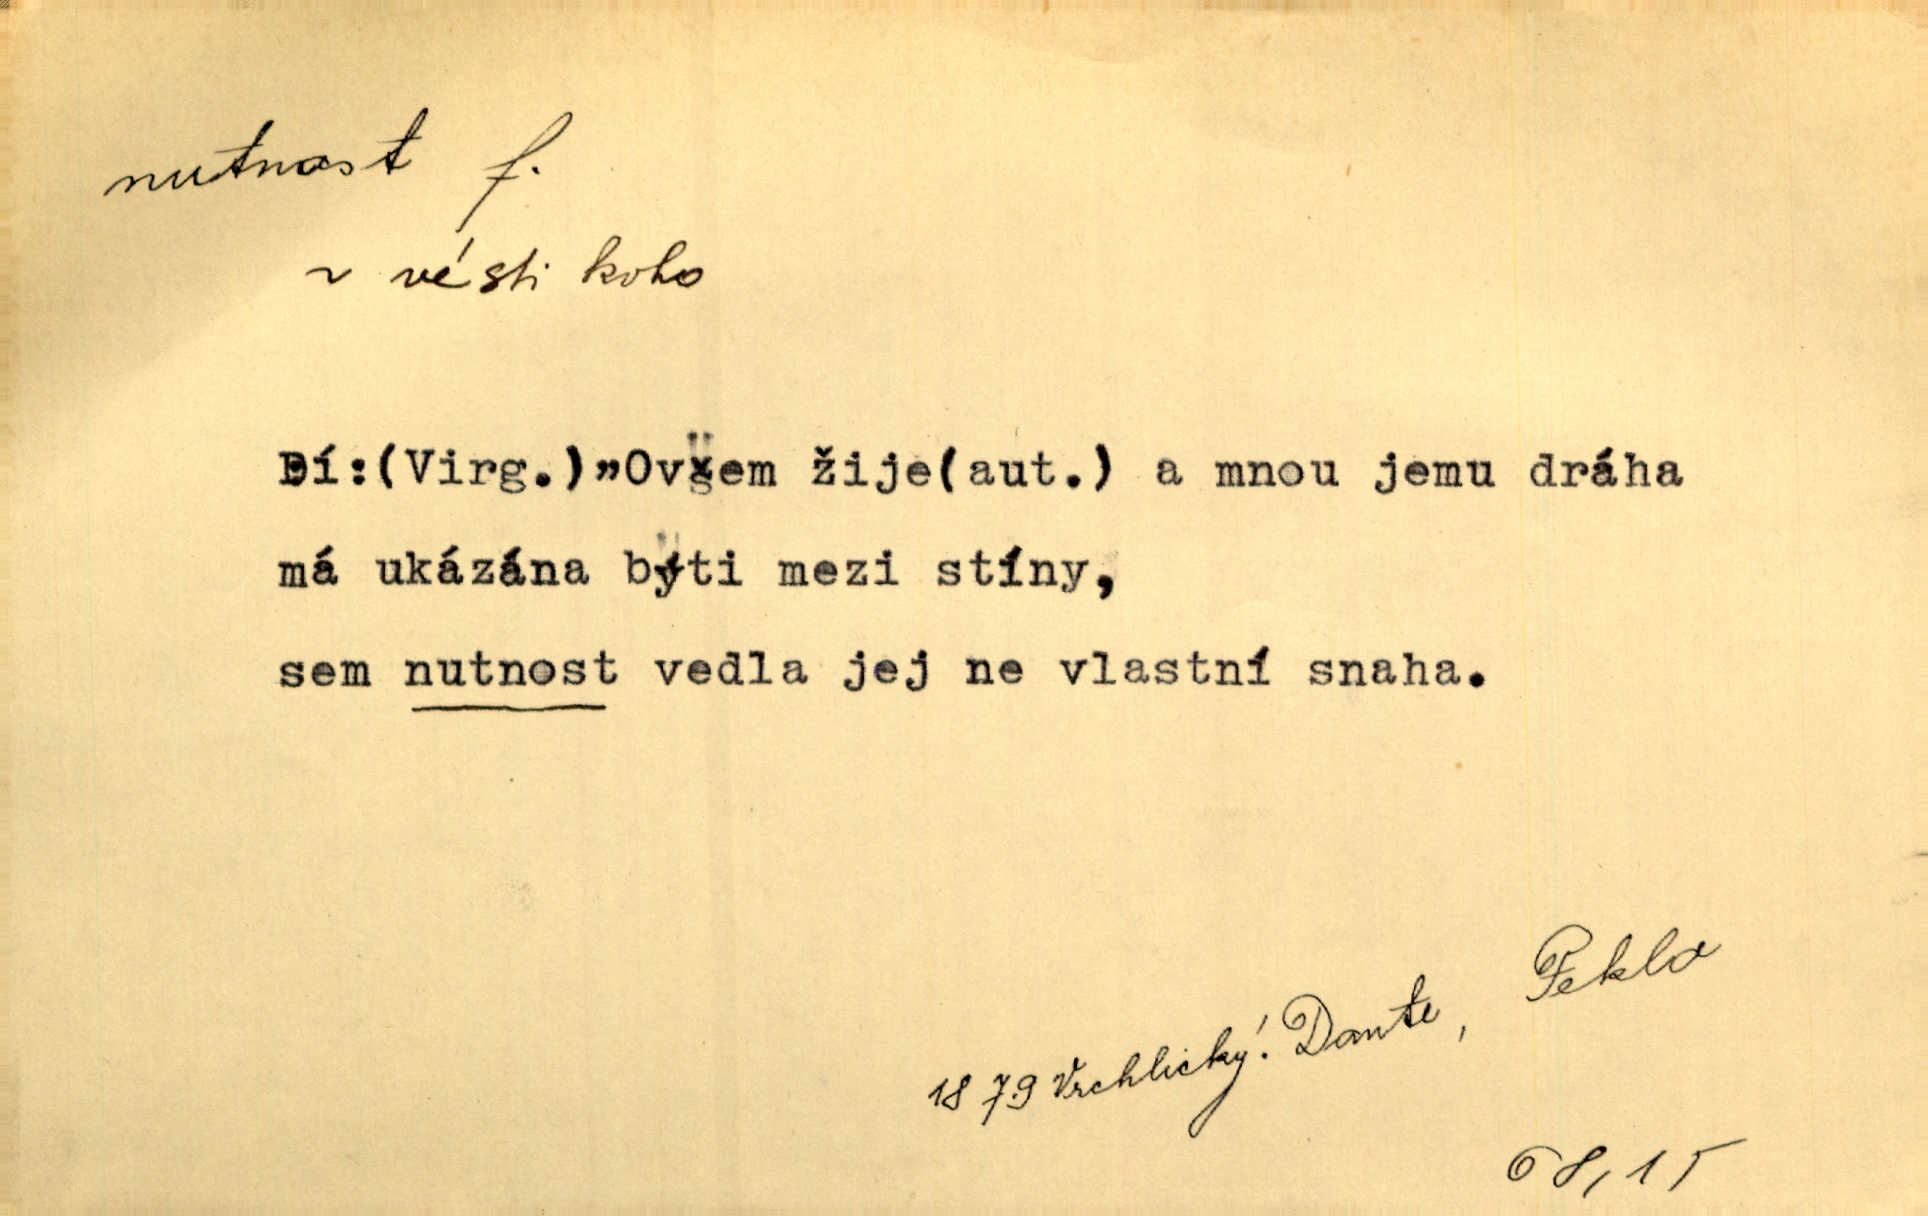 nutnost f.
~ vésti koho
Dí:(Virg.)„Ovšem žije(aut.) a mnou jemu dráha
má ukázána býti mezi stíny,
sem nutnost vedla jej ne vlastní snaha.
1879 Vrchlický: Dante, Peklo
68,15